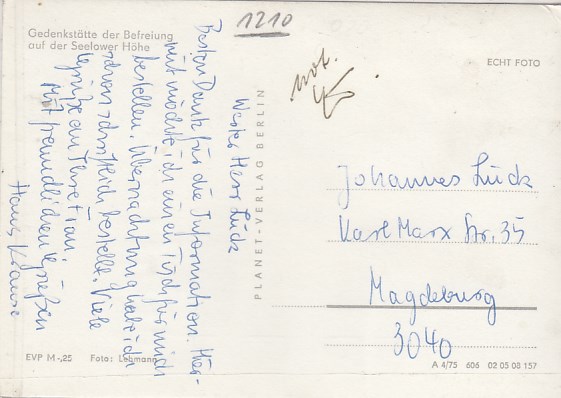 1210
Gedenkstätte der Befreiung
auf der Seelower Höhe
ECHT FOTO
not.
Werter Herr Lück
Besten Dank für die Information. Hier-
mit möchte ich einen Tisch für mich
bestellen. Übernachtung habe ich
schon schriftlich bestellt. Viele
Grüße an
Mit freundlichen Grüßen
Hans Krause
PLANET-VERLAG BERLIN
Johannes Lück
Karl Marx Str. 35
Magdeburg
3040
EVP M -,25 Foto: Lehmann
A 4/75 606 02 05 08 157